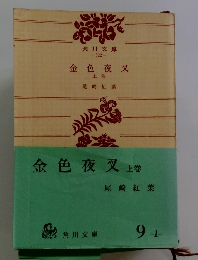 角川文庫
金色夜叉
上巻
尾崎紅葉
金色夜叉 上巻
尾崎紅葉
角川文庫